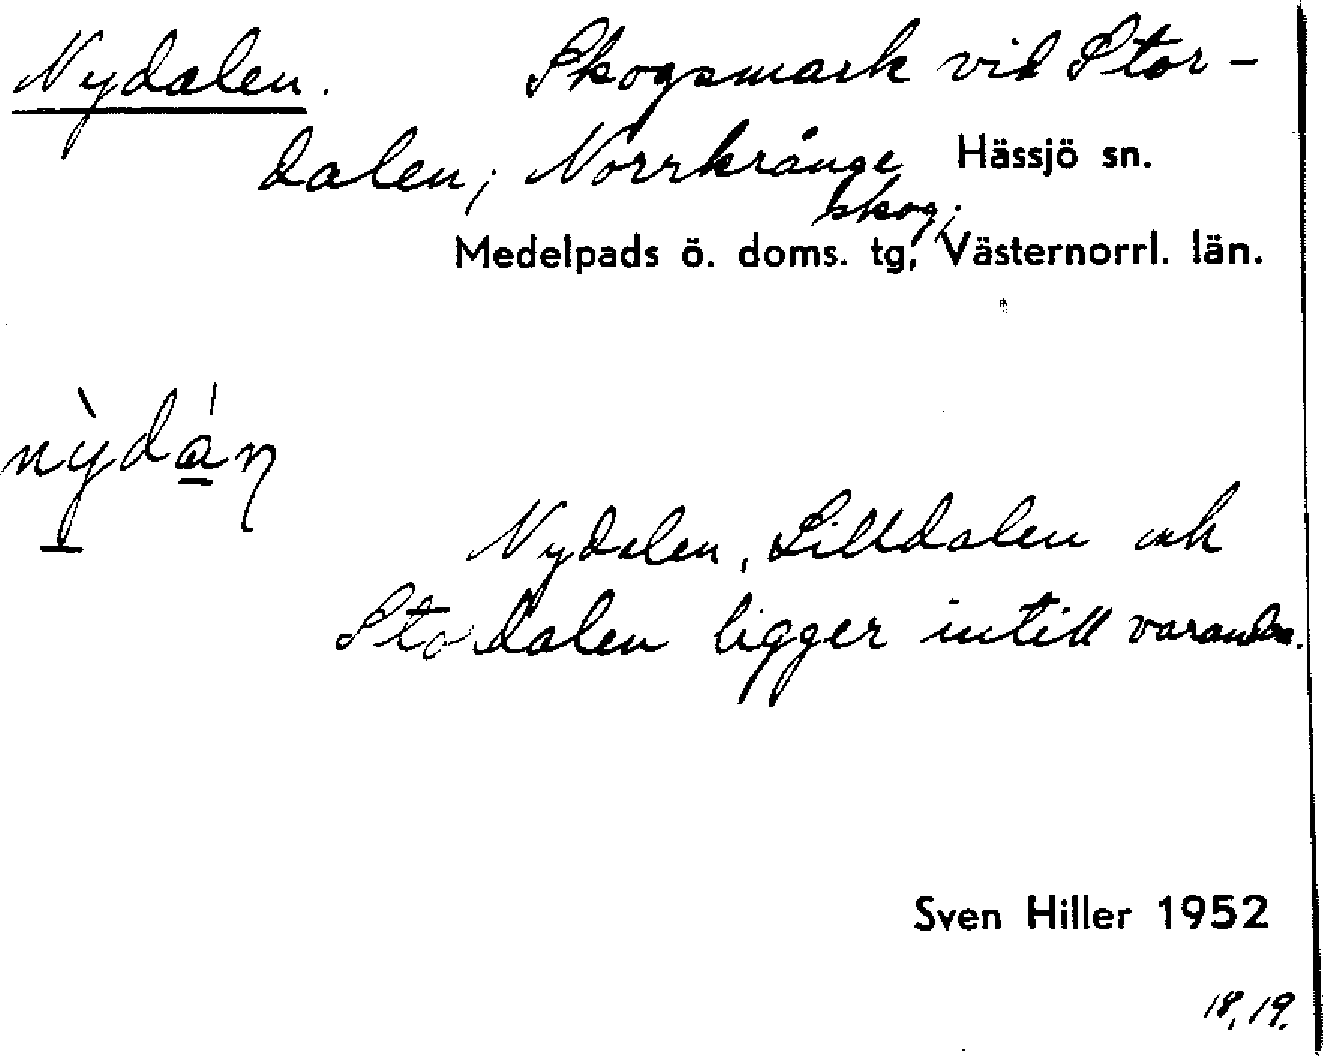 Nydalen. Skogsmark vid Stor-
dalen, Norrkrånge Hässjö sn.
skog,
Medelpads ö. doms. tg, Västernorrl. län.
nỳdán
Nydalen, Lilldalen och
Stordalen ligger intill varandra.
Sven Hiller 1952
18, 19.